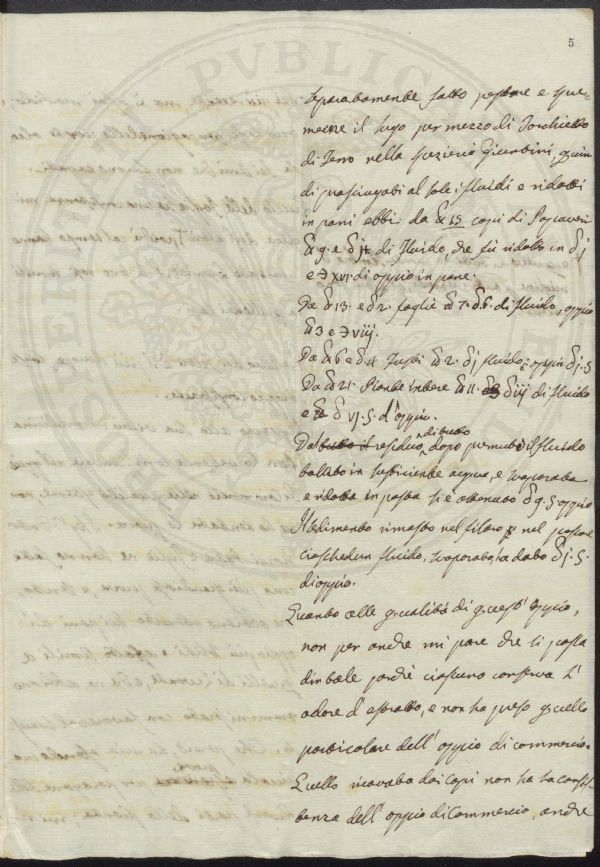 5
separatamente fatto pestare e spre-
mere il sugo per mezzo di Torchietto
di Ferro nella spezieria Giuntini, quin
di prosciugati al sole i fluidi e ridotti
in pani ebbi: da ℔ 15 capi di Papaveri
℔ 9. e di Fluido, che fù ridotto in
e ℈ XVI. di oppio in pane.
Da ℔ 13. e 2. foglie ℔ 7. 6. di Fluido, oppio
3 e ℈ viij.
Da ℔ 6 e 4 Fusti ℔ 2. j fluido: oppio j. S
Da ℔ 21. Piante intere ℔ 11. iij di Fluido
e vj. S. d'oppio.
Dal residuo di tutto dopo premuto il fluido
bollito in sufficiente acqua, e svaporata
e ridotta in pasta si è ottenuto 9. S oppio
Il sedimento rimasto nel filtro nel passare
ciaschedun fluido, svaporato, a dato j. S.
di oppio.
Quanto alle qualità di quest' Oppio,
non per anche mi pare che si possa
dir tale perchè ciascuno conserva l'
odore d'estratto, e non ha preso quello
particolare dell' oppio di commercio.
Quello ricavato dai Capi non ha la consis-
tenza dell' oppio di Commercio, anche